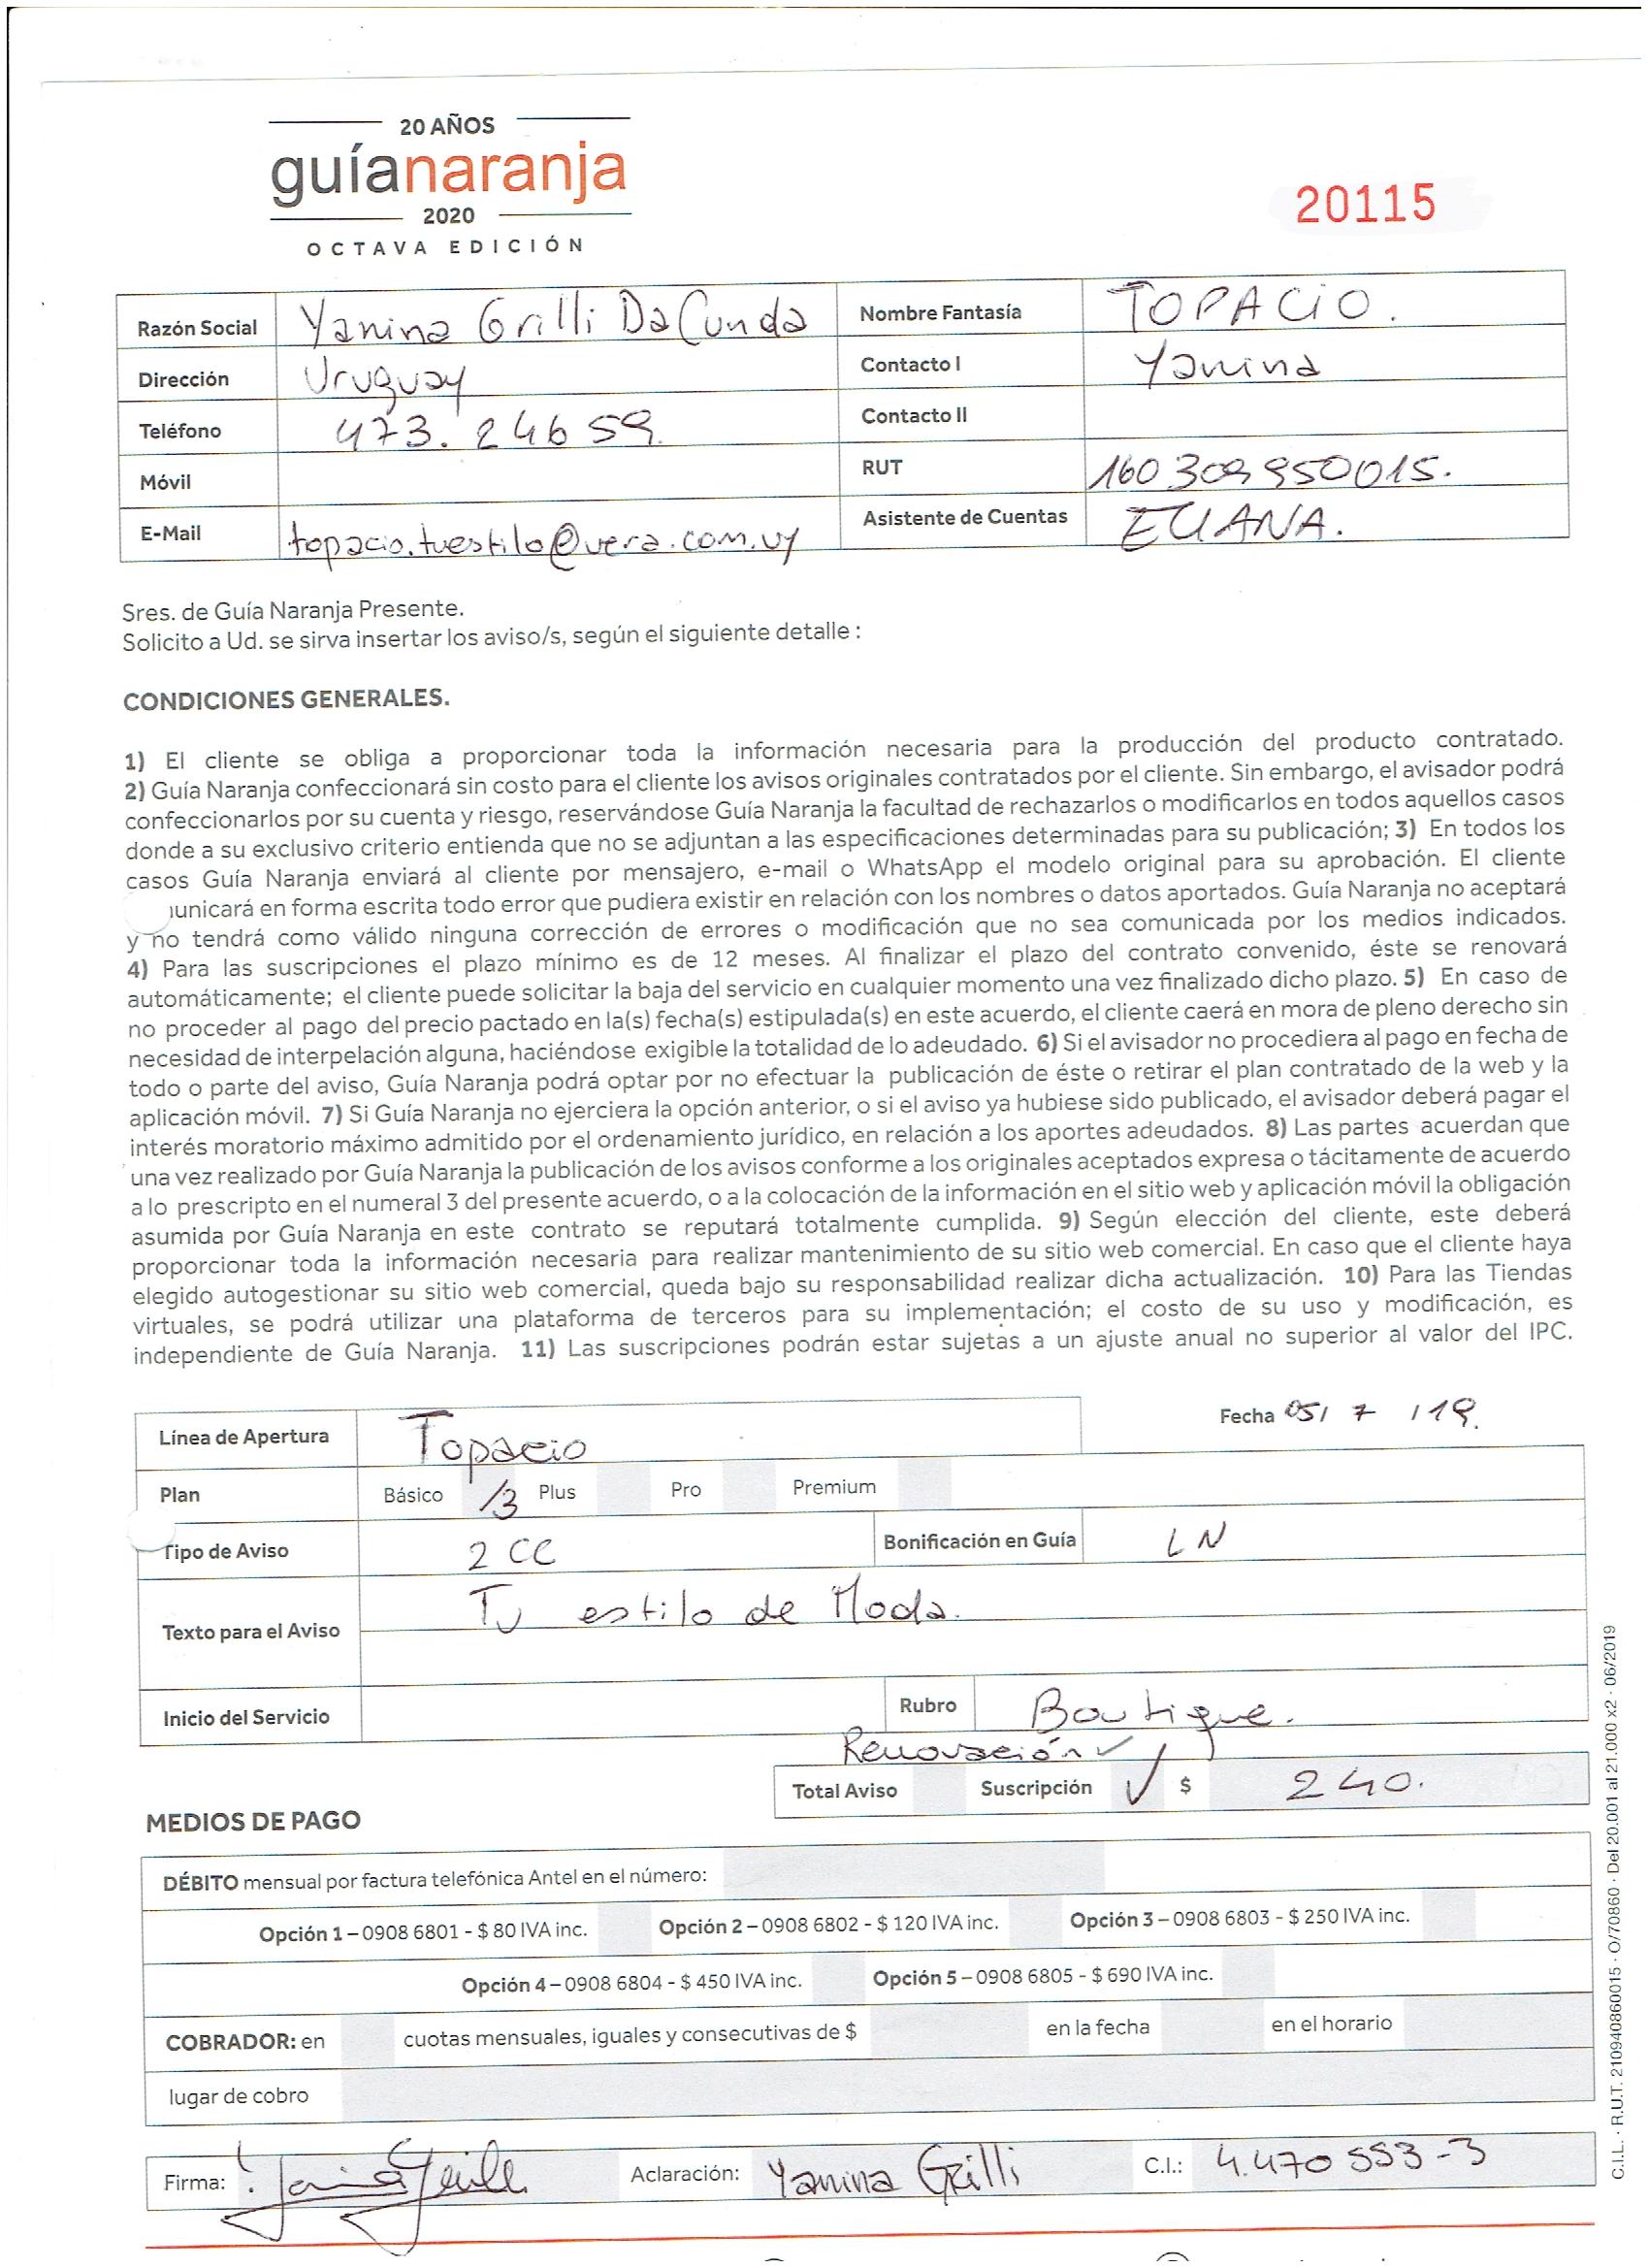 20 AÑOS
guíanaranja
2020
OCTAVA EDICIÓN
20115
Razón Social Yanina Grilli Da Cunda Nombre Fantasía TOPACIO.
Dirección Uruguay Contacto I Yanina
Teléfono 473.24659. Contacto II
Móvil RUT 160309950015.
E-Mail topacio.tuestilo@vera.com.uy Asistente de Cuentas
Sres. de Guía Naranja Presente.
Solicito a Ud. se sirva insertar los aviso/s, según el siguiente detalle :
CONDICIONES GENERALES.
1) El cliente se obliga a proporcionar toda la información necesaria para la producción del producto contratado.
2) Guía Naranja confeccionará sin costo para el cliente los avisos originales contratados por el cliente. Sin embargo, el avisador podrá
confeccionarlos por su cuenta y riesgo, reservándose Guía Naranja la facultad de rechazarlos o modificarlos en todos aquellos casos
donde a su exclusivo criterio entienda que no se adjuntan a las especificaciones determinadas para su publicación; 3) En todos los
casos Guía Naranja enviará al cliente por mensajero, e-mail o WhatsApp el modelo original para su aprobación. El cliente
unicará en forma escrita todo error que pudiera existir en relación con los nombres o datos aportados. Guía Naranja no aceptará
y no tendrá como válido ninguna corrección de errores o modificación que no sea comunicada por los medios indicados.
4) Para las suscripciones el plazo mínimo es de 12 meses. Al finalizar el plazo del contrato convenido, éste se renovará
automáticamente; el cliente puede solicitar la baja del servicio en cualquier momento una vez finalizado dicho plazo. 5) En caso de
no proceder al pago del precio pactado en la(s) fecha(s) estipulada(s) en este acuerdo, el cliente caerá en mora de pleno derecho sin
necesidad de interpelación alguna, haciéndose exigible la totalidad de lo adeudado. 6) Si el avisador no procediera al pago en fecha de
todo o parte del aviso, Guía Naranja podrá optar por no efectuar la publicación de éste o retirar el plan contratado de la web y la
aplicación móvil. 7) Si Guía Naranja no ejerciera la opción anterior, o si el aviso ya hubiese sido publicado, el avisador deberá pagar el
interés moratorio máximo admitido por el ordenamiento jurídico, en relación a los aportes adeudados. 8) Las partes acuerdan que
una vez realizado por Guía Naranja la publicación de los avisos conforme a los originales aceptados expresa o tácitamente de acuerdo
a lo prescripto en el numeral 3 del presente acuerdo, o a la colocación de la información en el sitio web y aplicación móvil la obligación
asumida por Guía Naranja en este contrato se reputará totalmente cumplida. 9) Según elección del cliente, este deberá
proporcionar toda la información necesaria para realizar mantenimiento de su sitio web comercial. En caso que el cliente haya
elegido autogestionar su sitio web comercial, queda bajo su responsabilidad realizar dicha actualización. 10) Para las Tiendas
virtuales, se podrá utilizar una plataforma de terceros para su implementación; el costo de su uso y modificación, es
independiente de Guía Naranja. 11) Las suscripciones podrán estar sujetas a un ajuste anual no superior al valor del IPC.
Línea de Apertura Topacio Fecha 05/ 7 /19.
Plan Básico Plus Pro Premium
Tipo de Aviso 2 CC Bonificación en Guía LN
Texto para el Aviso Tu estilo de Moda.
Inicio del Servicio Rubro Boutique.
Renovación ✓
Total Aviso Suscripción ✓ $ 240.
MEDIOS DE PAGO
DÉBITO mensual por factura telefónica Antel en el número:
Opción 1 – 0908 6801 - $ 80 IVA inc. Opción 2 – 0908 6802 - $ 120 IVA inc. Opción 3 – 0908 6803 - $ 250 IVA inc.
Opción 4 – 0908 6804 - $ 450 IVA inc. Opción 5 – 0908 6805 - $ 690 IVA inc.
COBRADOR: en cuotas mensuales, iguales y consecutivas de $ en la fecha en el horario
lugar de cobro
Firma: Aclaración: Yanina Grilli C.I.: 4.470 553-3
C.I.L. · R.U.T. 210940860015 · O/70860 · Del 20.001 al 21.000 x2 · 06/2019